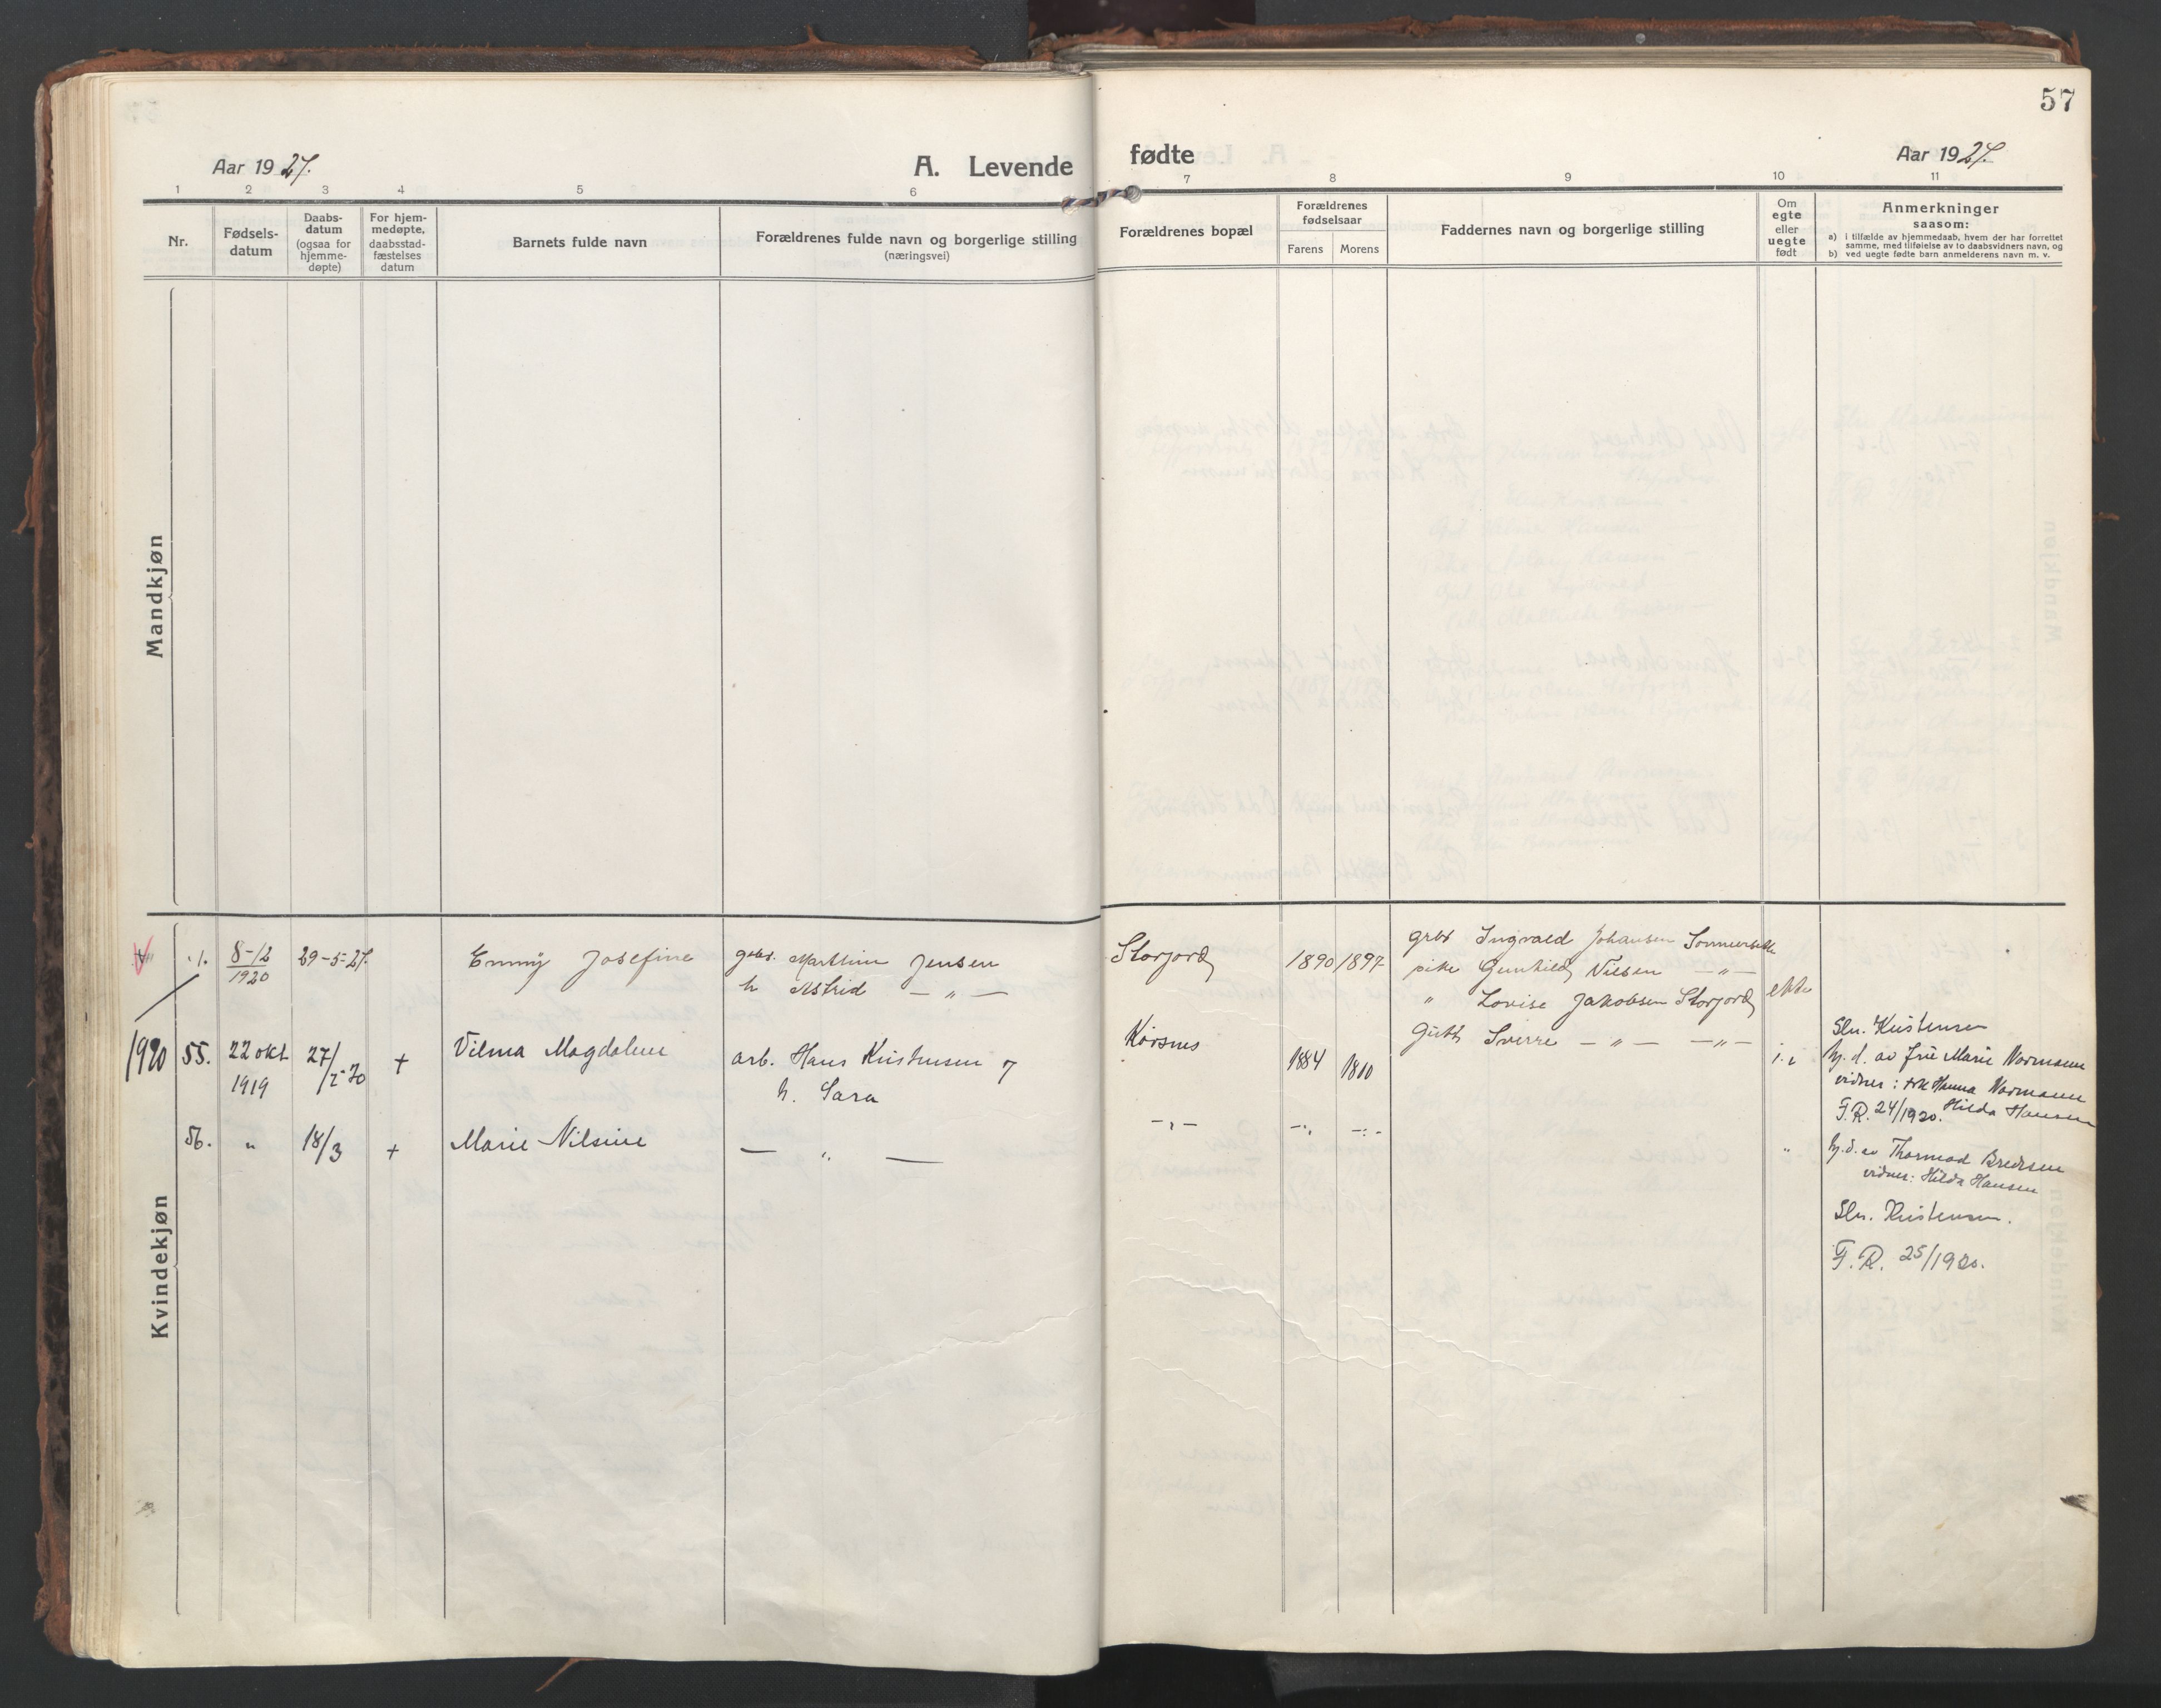 57
Aar 1927.
A. Levende fødte
Aar 1927.
1 2 3 4 5 6 7 8 9 10 11
Nr.
Fødsels-
datum
Daabs-
datum
(ogsaa for
hjemme-
døpte)
For hjem-
medøpte,
daabsstad-
fæstelses
datum
Barnets fulde navn
Forældrenes fulde navn og borgerlige stilling
(næringsvei)
Forældrenes bopæl
Forældrenes
fødselsaar
Farens Morens
Faddernes navn og borgerlige stilling
Om
egte
eller
uegte
født
Anmerkninger
saasom:
a) i tilfælde av hjemmedaab, hvem der har forrettet
samme, med tilføielse av to daabsvidners navn, og
b) ved uegte fødte barn anmelderens navn m. v.
Mandkjøn
Kvindekjøn
1. 8-12 1920 29-5-27. Emmy Josefine
Marthin Jensen
h Astrid — " —
Storjord 1890 1897
Ingvald Johansen
pike Gunhild Nilsen — " —
" Lovise Jakobsen Storjord
ekte
Sverre — " — — " —
1920 55. 22 okt 1919 + Vilma Magdalene
arb. Hans Kristensen
h. Sara
Korsnes 1884
Kristensen
hj. d. av frü Marie Normann
vidner: Hanna Normann
Hilda Hansen
F.R. 24/1920.
56. " 18/3 + Marie Nilsine — " —
"
hj. d. av Thormod Bredesen
vidner: Hilda Hansen
Kristensen.
F.R. 25/1920.